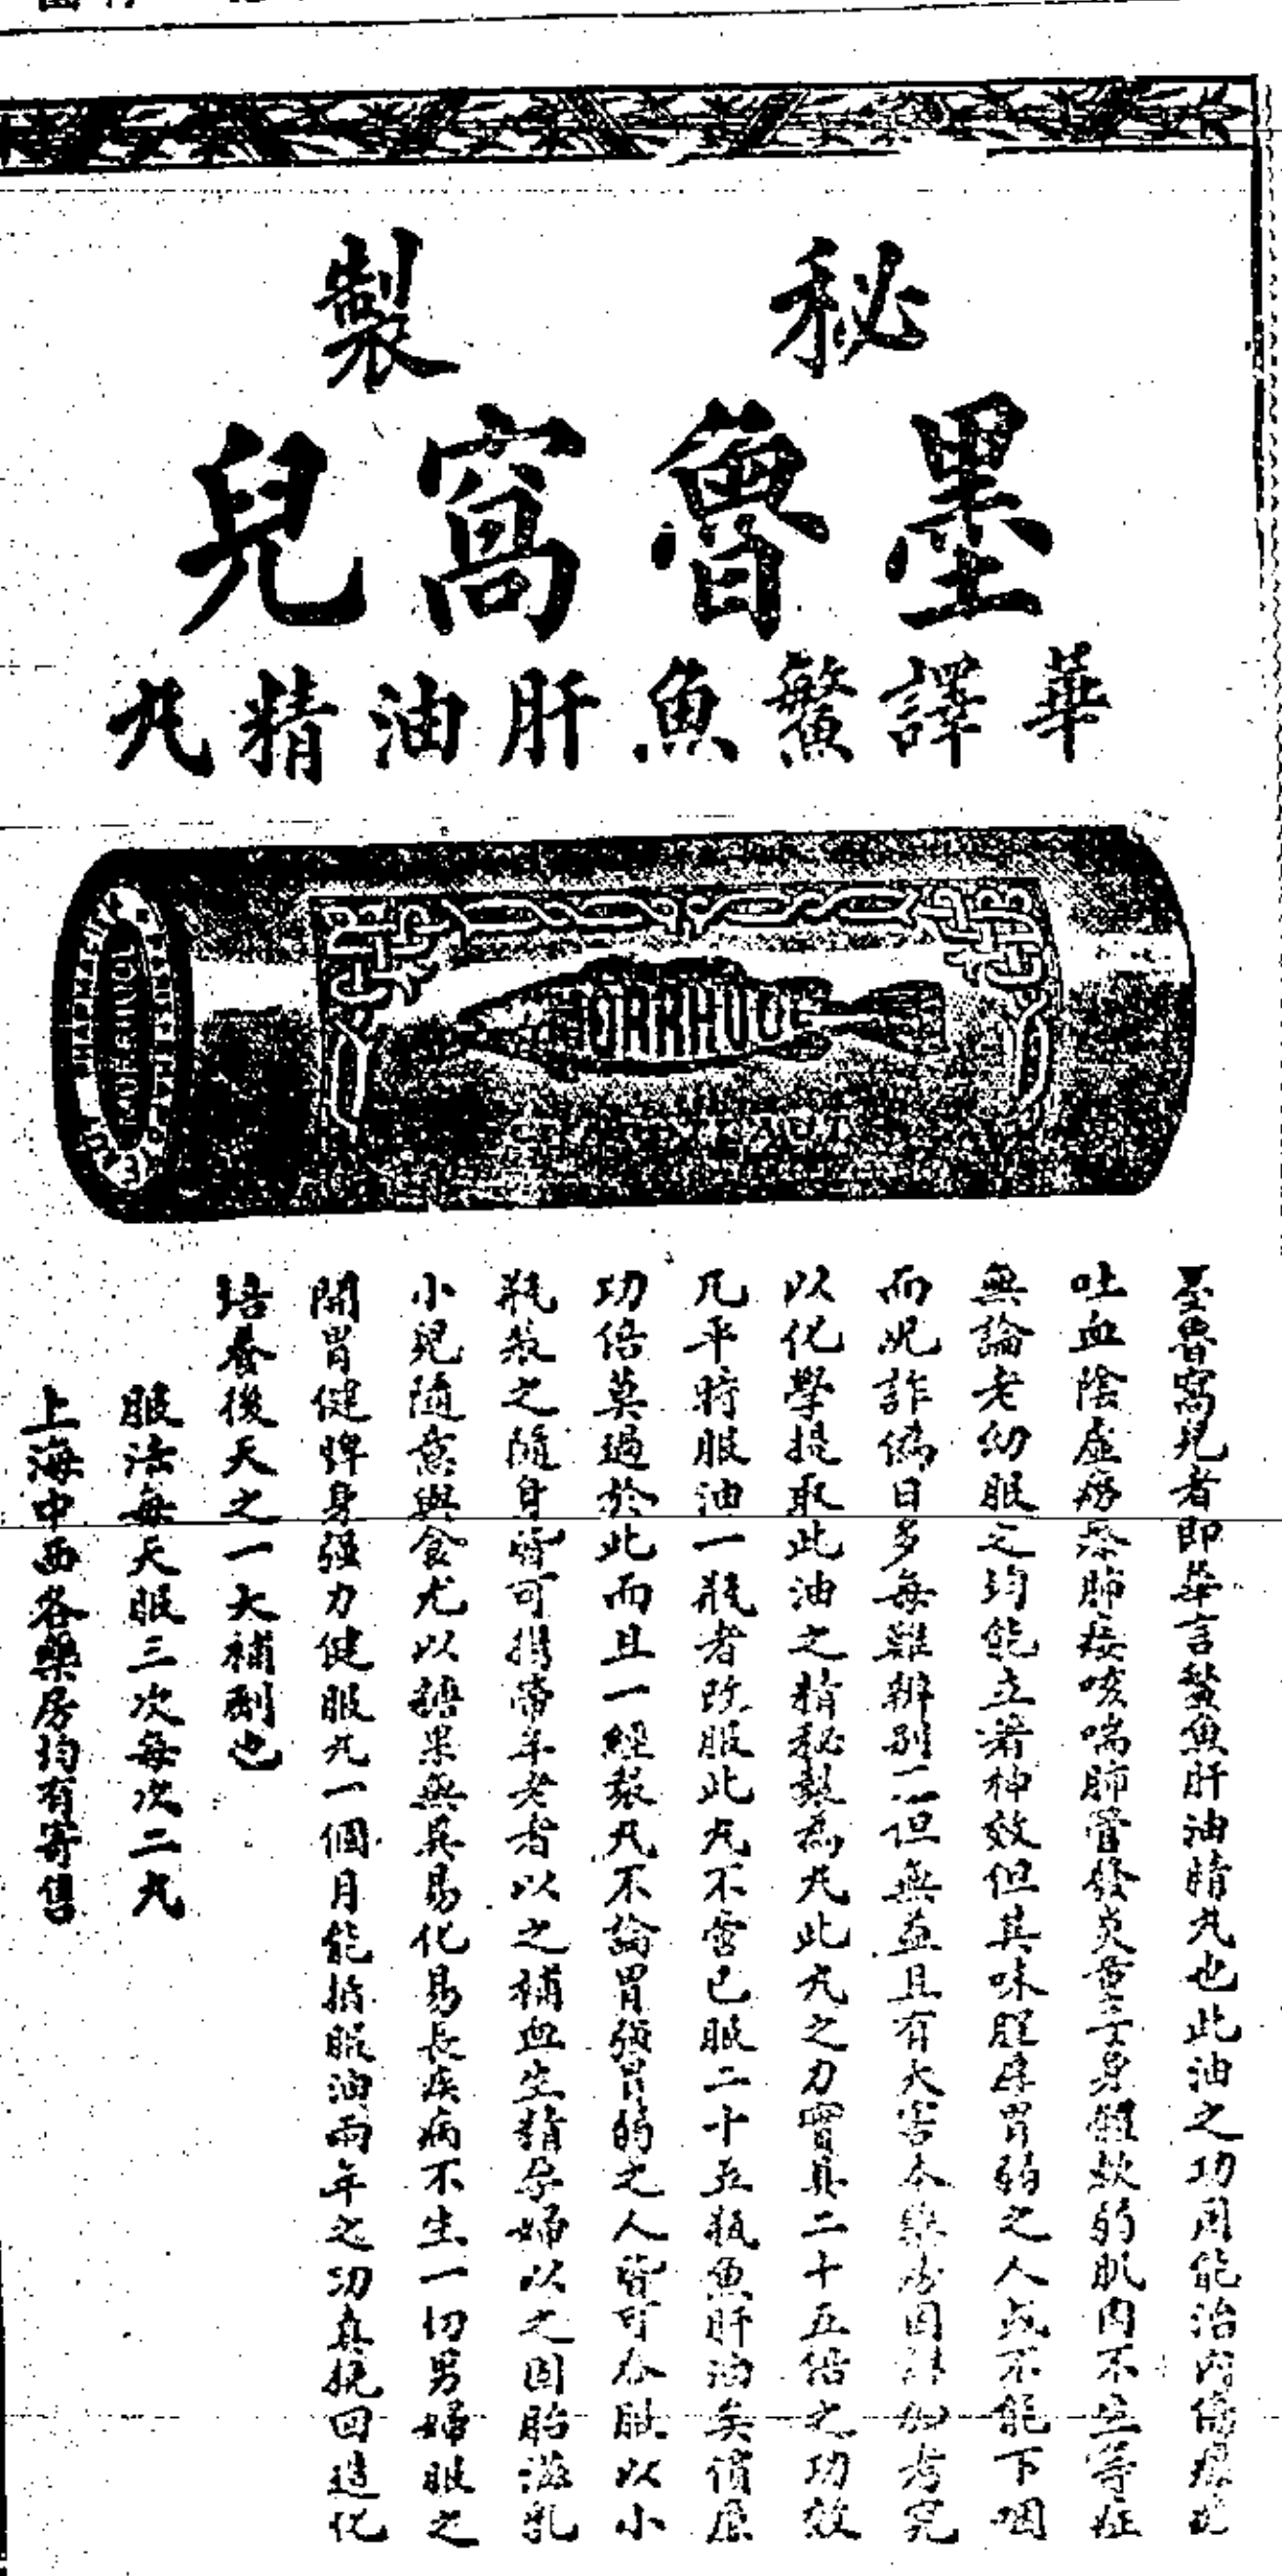 秘製
墨魯窩兒
華譯鰵魚肝油精丸
MORRHUOL
墨魯窩兒者即華言鰵魚肝油精丸也此油之功用能治內傷
吐血陰虛癆瘵肺痿咳喘肺管發炎童子身體軟弱肌肉不生等症
無論老幼服之均能立著神效但其味腥厚胃弱之人或不能下咽
而况詐偽日多每難辨別不但無益且有大害本藥房因詳細考究
以化學提取此油之精秘製為丸此丸之力實具二十五倍之功效
凡平時服油一瓶者改服此丸不啻已服二十五瓶魚肝油矣價廉
功倍莫過於此而且一經製丸不論胃強胃弱之人皆可吞服以小
瓶裝之隨身皆可携帶年老者以之補血生精孕婦以之固胎滋乳
小兒隨意與食尤以糖果無異易化易長疾病不生一切男婦服之
開胃健脾身強力健服丸一個月能抵服油兩年之功真挽回造化
培養後天之一大補劑也
服法每天服三次每次二丸
上海中西各藥房均有寄售